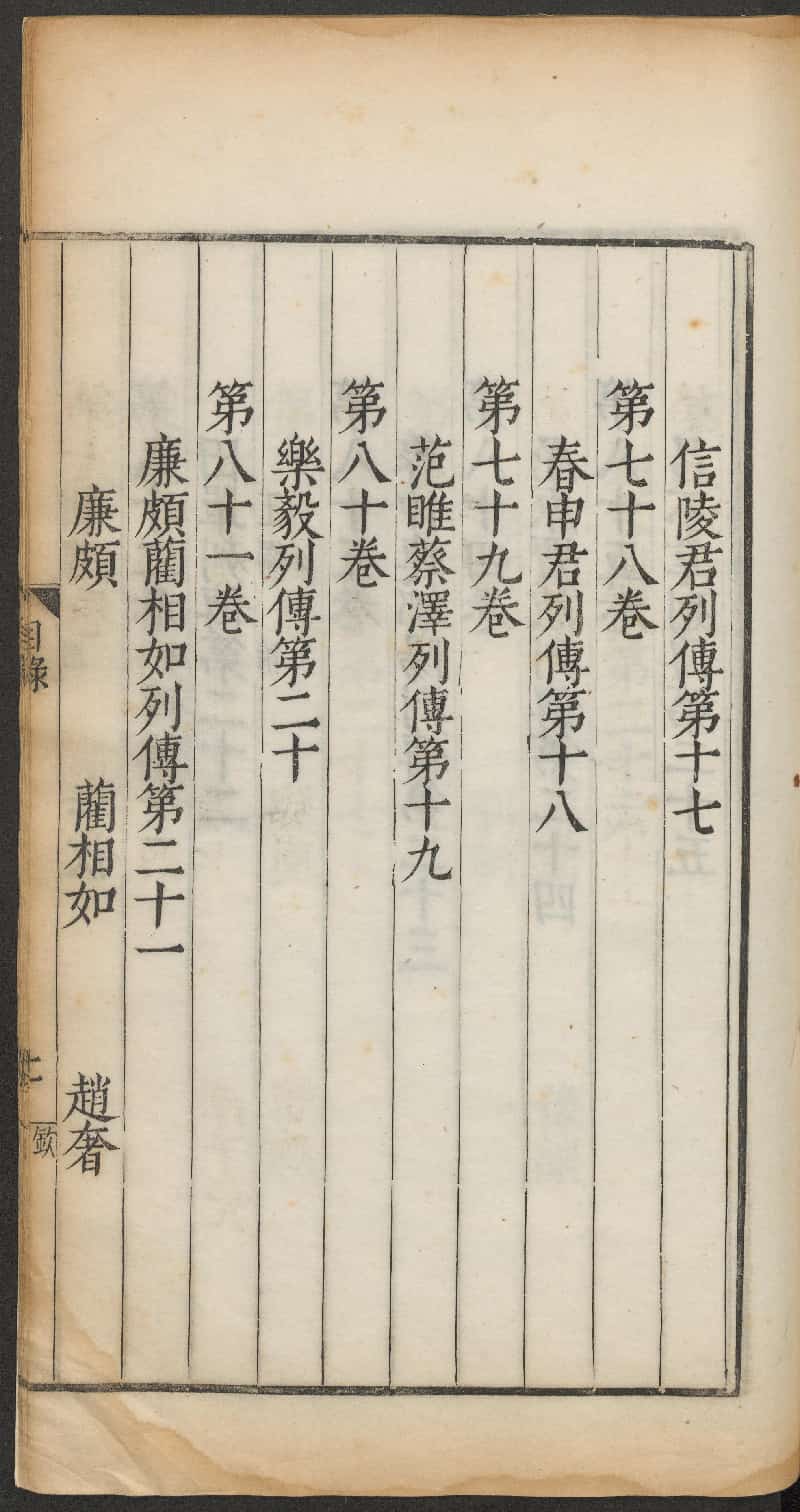 信陵君列傳第十七
第七十八卷
春申君列傳第十八
第七十九卷
范睢蔡澤列傳第十九
第八十卷
樂毅列傳第二十
第八十一卷
廉頗藺相如列傳第二十一
廉頗 藺相如 趙奢
目錄